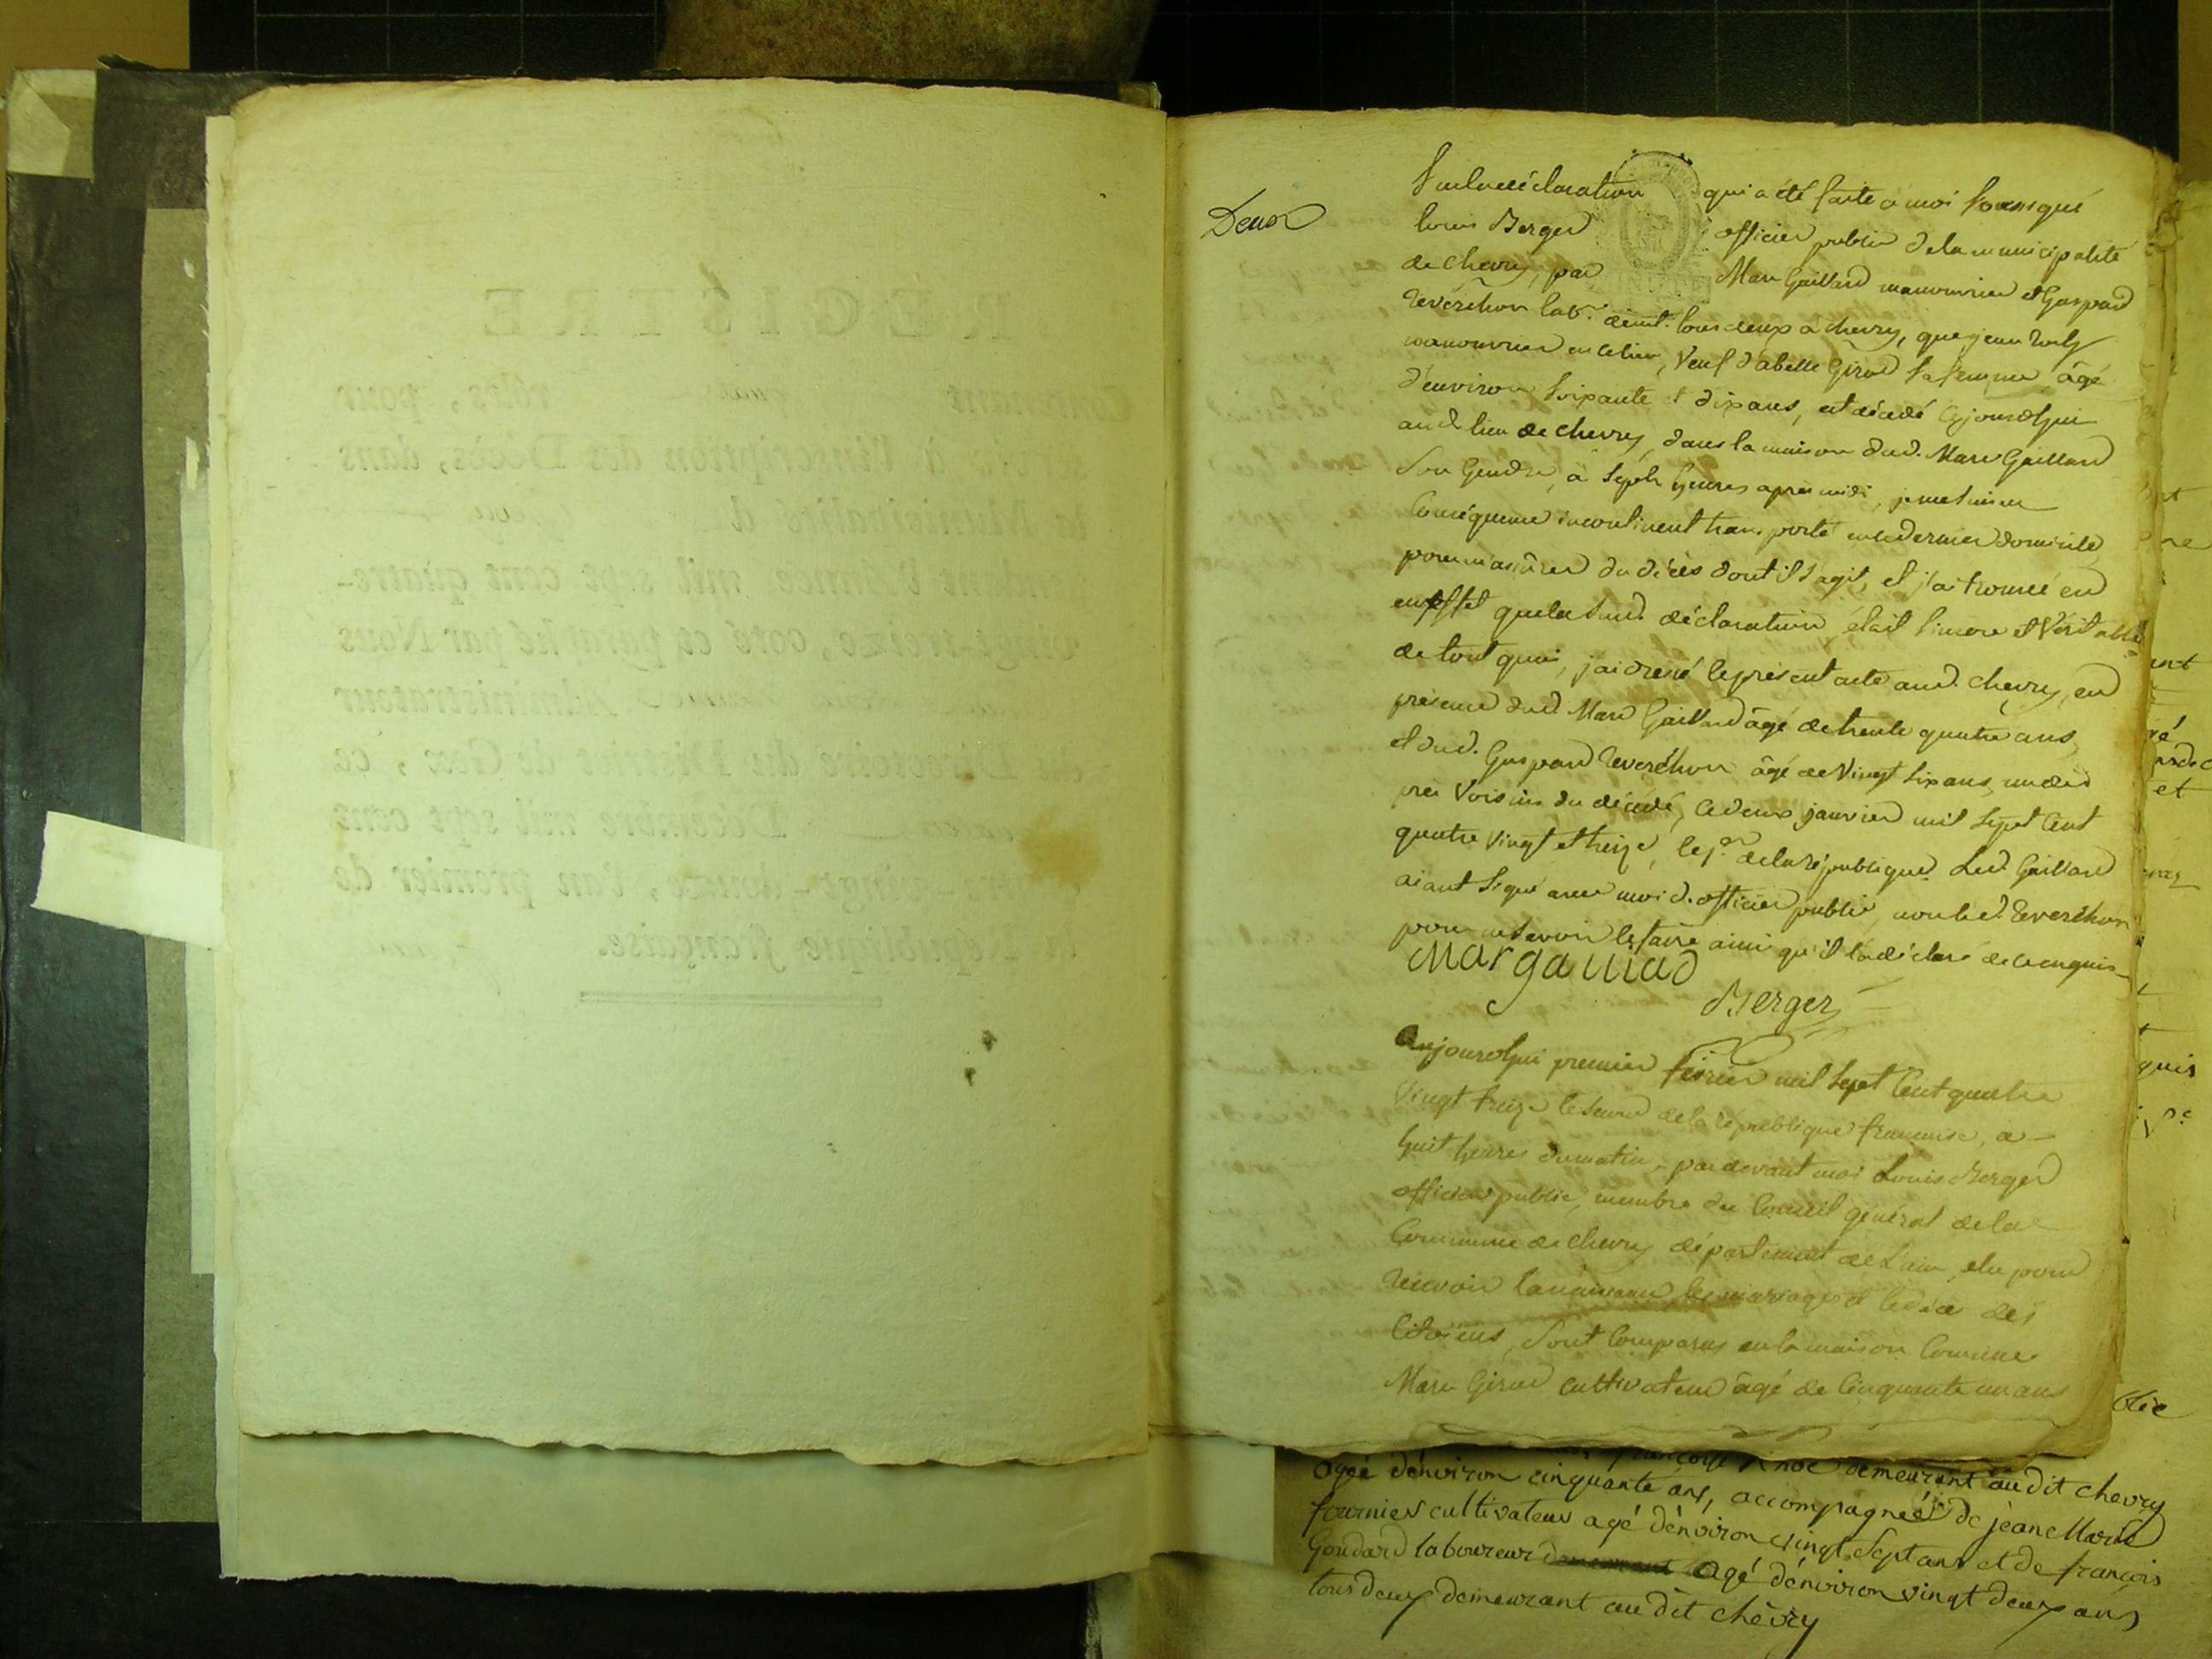 REGISTRE
rôles, pour
à l'inscription des Décès, dans
la Municipalité d
pendant l'année mil sept cent quatre-
vingt-treize, coté et paraphé par Nous
Administrateur
Directoire du District de Gex, ce
Décembre mil sept cent
vingt-douze, l'an premier de
la République française.
Deux
Sur la déclaration qui a été faite a moi soussigné
louis Berger officier public de la municipalité
de chevry, par Marc Gaillard manouvrier et Gaspard
Reverchon lab.r demt. tous deux a chevry, que jean
manouvrier en ce lieu, Veuf d'abelle Girod sa femme âgé
d'environ soixante & dix ans, est décédé cejourdhui
aud. lieu de chevry dans la maison dud. Marc Gaillard
son Gendre, à sept heures après midi, je me suis en
conséquence incontinent transporté en ce dernier domicile,
pour m'assûrer du décès dont il s'agit, et j'ai trouvé en
effet que la susd. déclaration était sincere et Véritable
de tout quoi, j'ai dressé le présent acte aud. chevry, en
présence dud. Marc Gaillard âgé de trente quatre ans,
et dud. Gaspard Reverchon âgé de Vingt six ans, un des
prés Voisins du décédé, ce deux janvier mil sept cent
quatre vingt et treize, le p.er de la république. Led. Gaillard
aiant signé avec moi d. officier public, non led. Reverchon
pour ne savoir le faire ainsi qu'il l'a déclaré de ce enquis
Mar gailiad
Berger
Aujourdhui premier février mil sept Cent quatre
Vingt treize le second de la république françoise, a
huit heures du matin, par devant moi Louis Berger
officier public, membre du Conseil général de la
Commune de chevry département de L'ain, élu pour
recevoir les mariages et des
Citoïens, sont comparus en la maison Comune
Marc Girod cultivateur âgé de Cinquante un ans
demeurant au dit chevry
agé dénviron cinquante ans, accompagnéé de jean Marie
fournier cultivateur agé dénviron vingt Sept ans et de francois
Goudard laboureur agé dénviron vingt deux ans
tous deux demeurant au dit chèvry